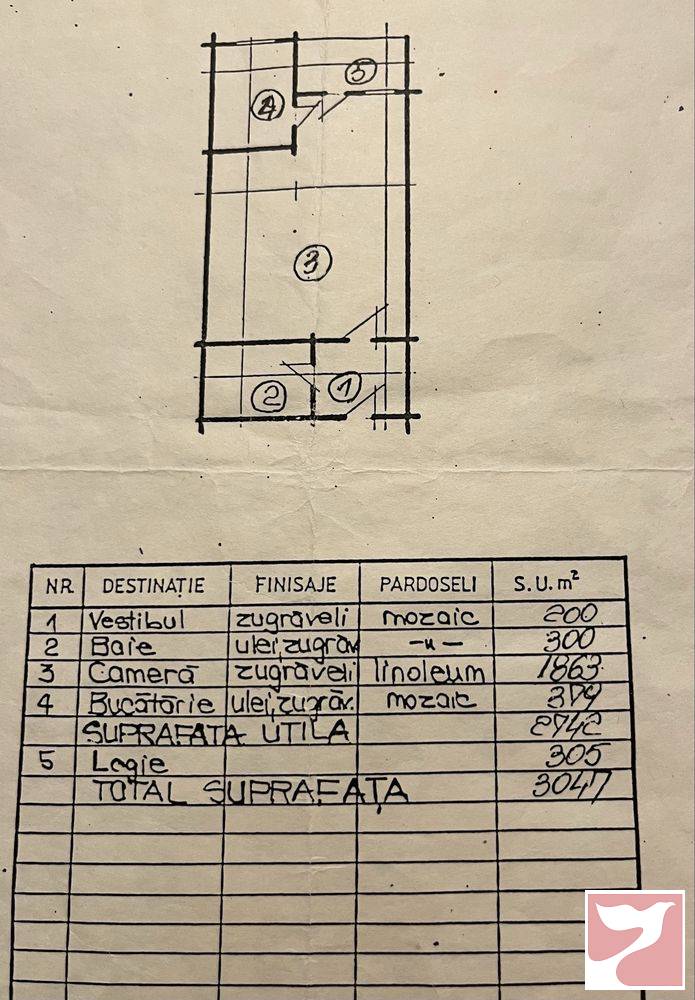 5
4
3
2
1
NR DESTINAȚIE FINISAJE PARDOSELI S.U. m²
1 Vestibul zugrăveli mozaic 200
2 Baie ulei,zugrăv —"— 300
3 Cameră zugrăveli linoleum 1863
4 Bucătărie ulei,zugrăv. mozaic 379
SUPRAFAȚA UTILA 2742
5 Logie 305
TOTAL SUPRAFAȚA 3047